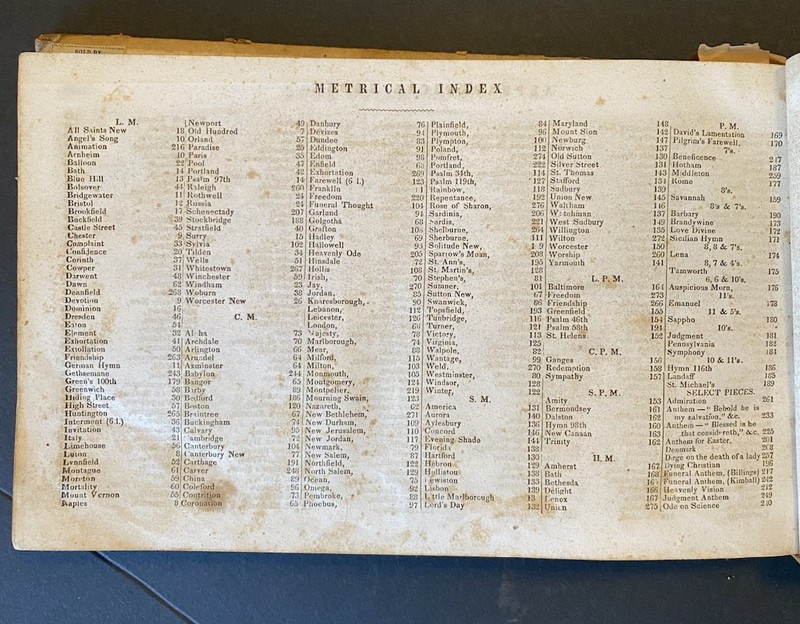 SOLD BY
METRICAL INDEX
L. M.
All Saints New 18
Angel's Song 10
Animation 216
Arnheim 10
Balloon 22
Bath 14
Blue Hill 13
Bolsover 44
Bridgewater 11
Bristol 12
Brookfield 17
Buckfield 39
Castle Street 45
Chester 9
Complaint 53
Confidence 20
Corinth 37
Cowper 31
Darwent 48
Dawn 62
Deanfield 268
Devotion 9
Dominion 16
Dresden 46
Eaton 54
Element 32
Exhortation 41
Extollation 50
Friendship 263
German Hymn 11
Gethsemane 243
Green's 100th 179
Greenwich 58
Hiding Place 30
High Street 57
Huntington 265
Interment (6 l.) 36
Invitation 43
Italy 21
Limehouse 56
Luton 8
Lynnfield 52
Montague 61
Moreton 59
Mortality 60
Mount Vernon 55
Naples 8
Newport 49
Old Hundred 7
Orland 57
Paradise 25
Paris 35
Pool 47
Portland 42
Psalm 97th 14
Raleigh 260
Rothwell 24
Russia 24
Schenectady 207
Stockbridge 188
Stratfield 40
Surry 15
Sylvia 102
Tilden 34
Wells 51
Whitestown 267
Winchester 59
Windham 23
Woburn 38
Worcester New 26
C. M.
Archdale 70
Arlington 66
Arundel 64
Axminster 64
Babylon 244
Bangor 65
Bixby 89
Bedford 186
Boston 120
Braintree 67
Buckingham 74
Calvary 95
Cambridge 72
Canterbury 104
Canterbury New 77
Carthage 191
Carver 248
China 89
Coleford 96
Contrition 73
Coronation 65
Danbury 76
Devizes 91
Dundee 83
Eddington 91
Edom 98
Enfield 68
Exhortation 269
Farewell (6 l.) 123
Franklin
Freedom 220
Funeral Thought 104
Garland 94
Golgotha 68
Grafton
Hadley 69
Hallowell 93
Heavenly Ode 205
Hinsdale 72
Hollis 108
Irish, 70
Jay, 270
Jordan, 101
Knaresborough, 85
Lebanon, 90
Leicester, 112
London, 126
Majesty, 66
Marlborough, 78
Mear, 74
Milford, 88
Milton, 115
Monmouth, 103
Montgomery, 105
Montpelier, 124
Mourning Swain, 219
Nazareth, 123
New Bethlehem, 62
New Durham, 271
New Jerusalem, 109
New Jordan, 110
Newmark, 117
New Salem, 79
Northfield, 87
North Salem, 122
Ocean, 129
Omega, 75
Pembroke, 92
Phoebus, 97
Plainfield, 84
Plymouth, 96
Plympton, 100
Poland, 112
Pomfret, 274
Portland, 222
Psalm 34th, 114
Psalm 119th, 127
Rainbow, 118
Repentance, 192
Rose of Sharon, 276
Sardinia, 206
Sardis, 221
Shelburne, 264
Sherburne, 111
Solitude New,
Sparrow's Moan, 208
St. Ann's, 195
St. Martin's, 128
Stephen's, 81
Sumner, 101
Sutton New, 67
Swanwick, 86
Topsfield, 193
Tunbridge, 116
Turner, 121
Victory, 113
Virginia, 125
Walpole, 82
Wantage, 99
Weld, 270
Westminster, 80
Windsor, 128
Winter, 122
S. M.
America 153
Aurora 131
Aylesbury 140
Concord 136
Evening Shade 146
Florida 144
Hartford 130
Hebron 129
Hylliotus 138
Lewiston 133
Lisbon 139
Little Marlborough
Lord's Day 132
Maryland 148
Mount Sion 142
Newburg 147
Norwich 137
Old Sutton 130
Silver Street 131
St. Thomas 143
Stafford 134
Sudbury 139
Union New 145
Waltham 146
Watchman 137
West Sudbury 149
Willington 135
Wilton 272
Worcester 150
Worship 260
Yarmouth 141
L. P. M.
Baltimore 164
Freedom 273
Friendship 266
Greenfield 155
Psalm 46th 154
Psalm 58th 194
St. Helens 152
C. P. M.
Ganges 156
Redemption 158
Sympathy 157
S. P. M.
Amity 153
Bermondsey 161
Dalston 169
Hymn 93th 160
New Canaan 163
Trinity 162
H. M.
Amherst 167
Bath 168
Bethesda
Delight 166
Lenox 167
Union 275
P. M.
David's Lamentation 169
Pilgrim's Farewell, 170
7's.
Beneficence 247
Hotham 187
Middleton 259
Rome 177
8's.
Savannah 159
8's & 7's.
Barbary 190
Brandywine 173
Love Divine 172
Sicilian Hymn 171
8, 8 & 7's.
Lena 174
8, 7 & 4's.
Tamworth 175
6, 6 & 10's.
Auspicious Morn, 176
11's.
Emanuel 178
11 & 5's.
Sappho 180
10's.
Judgment 181
Pennsylvania 182
Symphony 184
10 & 11's.
Hymn 116th 186
Landaff 185
St. Michael's 189
SELECT PIECES.
Admiration 261
Anthem—"Behold he is
my salvation," &c. 233
Anthem—"Blessed is he
that considereth," &c. 225
Anthem for Easter. 201
Denmark 208
Dirge on the death of a lady 257
Dying Christian 196
Funeral Anthem, (Billings) 217
Funeral Anthem, (Kimball) 242
Heavenly Vision 212
Judgment Anthem 249
Ode on Science 240